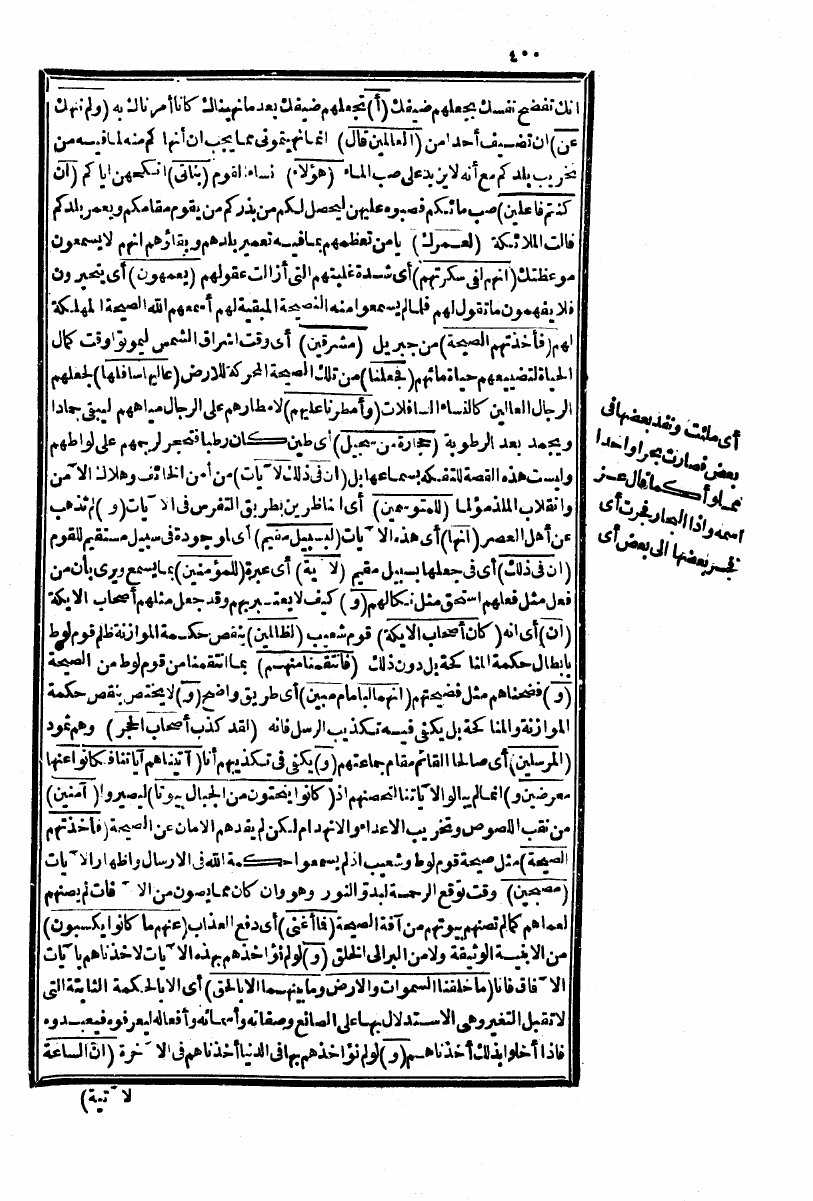 ٤٠٠
انك تفضح نفسك بجعلهم ضيفك (أ) تجعلهم ضيفك بعد ما نهيناك كانا أمرناك به (ولم ننهك
عن) ان تضيف أحدا من (العالمين قال) انما نهيتموني عما يجب ان أنهاكم منه لما فيه من
تخريب بلدكم مع أنه لا يزيد على صب الماء (هؤلاء) نساء القوم (بناتي) انكحهن اياكم (ان
كنتم فاعلين) صب مائكم فصبوه عليهن ليحصل لكم من بذركم من يقوم مقامكم ويعمر بلدكم
قالت الملائكة (لعمرك) يا من تعظمهم بما فيه تعمير بلدهم وبقاؤهم انهم لا يسمعون
موعظتك (انهم لفي سكرتهم) أي شدة غلبتهم التي أزالت عقولهم (يعمهون) أي يتحيرون
فلا يفهمون ما تقول لهم فلما لم يسمعوا منه النصيحة المبقية لهم أسمعهم الله الصيحة المهلكة
لهم (فأخذتهم الصيحة) من جبريل (مشرقين) أي وقت اشراق الشمس ليموتوا وقت كمال
الحياة لتضييعهم حياة مائهم (فجعلنا) من تلك الصيحة المحركة للارض (عاليها سافلها) لجعلهم
الرجال العالين كالنساء السافلات (وأمطرنا عليهم) لامطارهم على الرجال مياههم ليبقى جمادا
ويجمد بعد الرطوبة (حجارة من سجيل) أي طين كان رطبا فتحجر لرجمهم على لواطهم
وليست هذه القصة للتفكه بسماعها بل (ان في ذلك لآيات) من أمن الخائف وهلاك الآمن
وانقلاب الملذ مؤلما (للمتوسمين) أي الناظرين بطريق التفرس في الآيات (و) لم تذهب
عن أهل العصر (انها) أي هذه الآيات (لبسبيل مقيم) أي لموجودة في سبيل مستقيم للقوم
(ان في ذلك) أي في جعلها بسبيل مقيم (لآية) أي عبرة (للمؤمنين) بما يسمع ويرى بأن من
فعل مثل فعلهم استحق مثل نكالهم (و) كيف لا يعتبر بهم وقد جعل مثلهم أصحاب الايكة
(ان) أي انه (كان أصحاب الايكة) قوم شعيب (لظالمين) بنقص حكمة الموازنة ظلم قوم لوط
بابطال حكمة المناكحة بل دون ذلك (فانتقمنا منهم) بما انتقمنا من قوم لوط من الصيحة
(و) فضحناهم مثل فضيحتهم (انهما لبامام مبين) أي طريق واضح (و) لا يختص بنقص حكمة
الموازنة والمناكحة بل يكفي فيه تكذيب الرسل فانه (لقد كذب أصحاب الحجر) وهم ثمود
(المرسلين) أي صالحا القائم مقام جماعتهم (و) يكفي في تكذيبهم أنا (آتيناهم آياتنا فكانوا عنها
معرضين و) انما لم يبالوا لآياتنا لتحصنهم اذ (كانوا ينحتون من الجبال بيوتا) ليصيروا (آمنين)
من نقب اللصوص وتخريب الاعداء والانهدام لكن لم يفدهم الامان عن الصيحة (فأخذتهم
الصيحة) مثل صيحة قوم لوط وشعيب اذ لم يسمعوا حكمة الله في الارسال واظهار الآيات
(مصبحين) وقت توقع الرحمة لبدو النور وهو وان كان مما يصون من الآفات لم يصنهم
لعماهم كما لم تصنهم بيوتهم من آفة الصيحة (فما أغنى) أي دفع العذاب (عنهم ما كانوا يكسبون)
من الابنية الوثيقة ولا من البر الى الخلق (و) لو لم نؤاخذهم بهذه الآيات لاخذناهم بآيات
الآفاق فانا (ما خلقنا السموات والارض وما بينهما الا بالحق) أي الا بالحكمة الثابتة التي
لا تقبل التغير وهي الاستدلال بها على الصانع وصفاته وأسمائه وأفعاله ليعرفوه فيعبدوه
فاذا أخلوا بذلك أخذناهم (و) لو لم نؤاخذهم بها في الدنيا أخذناهم في الآخرة (ان الساعة
لآتية)
أي ملئت ونفذ بعضها في
بعض فصارت بحرا واحدا
مملوأ كما قال عز
اسمه واذا البحار فجرت أي
فجر بعضها الى بعض أي